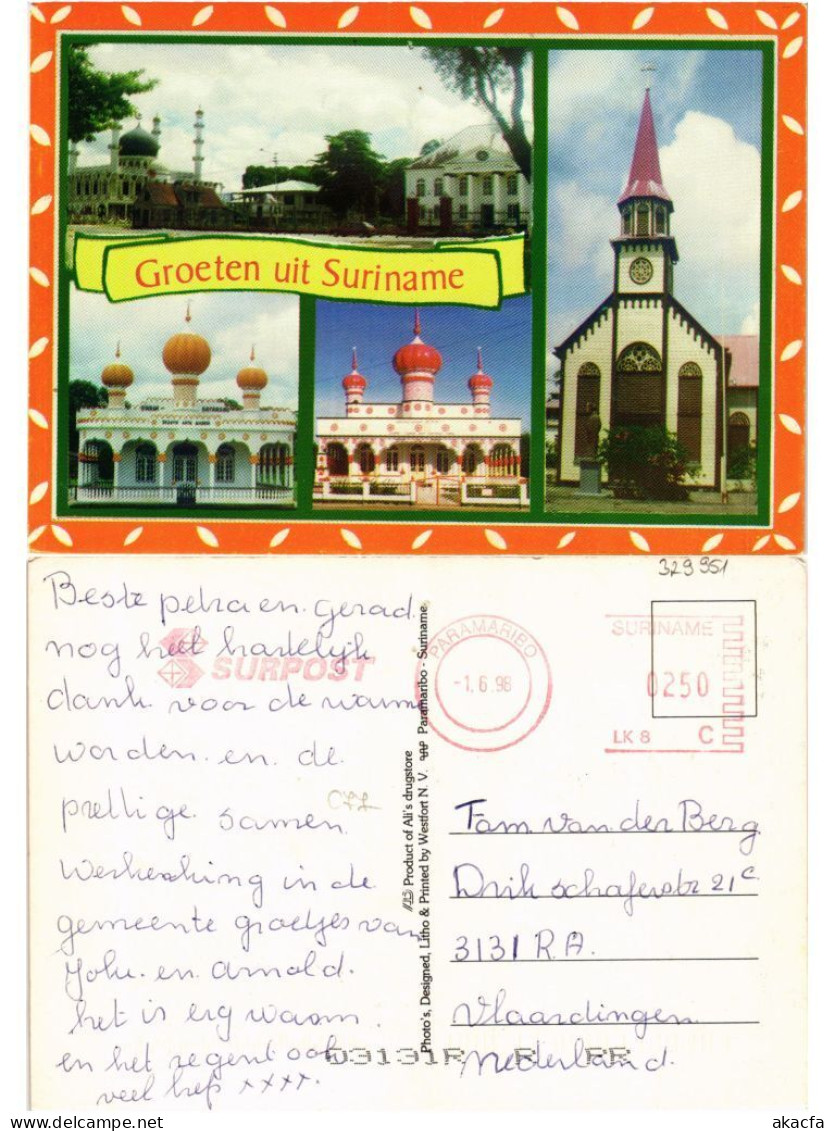 Groeten uit Suriname
329951
Beste petra en gerad.
nog heel hartelijk
dank voor de warme
worden en de
prettige samen
werking in de
gemeente groetjes van
en arnold.
het is erg waarm.
en het regent ook
veel xxxx.
SURPOST
PARAMARIBO
-1.6.98
SURINAME
0250
LK 8 C
Product of Ali's drugstore
Photo's, Designed, Litho & Printed by Westfort N.V. Paramaribo - Suriname.
Fam van der Berg
21c
3131 RA.
Vlaardingen
Nederland.
akacfa